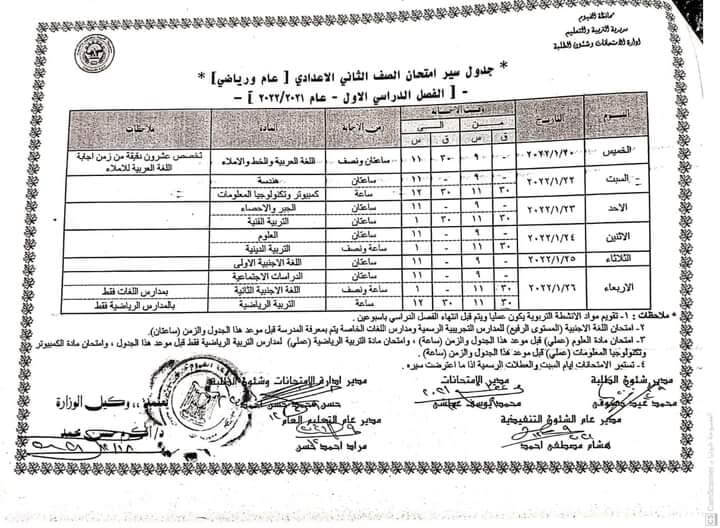 محافظة الفيوم
مديرية التربية والتعليم
ادارة الامتحانات وشئون الطلبة
* جدول سير امتحان الصف الثاني الاعدادي [ عام ورياضي ] *
- [ الفصل الدراسي الاول - عام ٢٠٢٢/٢٠٢١ ] -
اليوم التاريخ وقت الاجابة زمن الاجابة المادة ملاحظات
من الى
ق س ق س
الخميس ٢٠٢٢/١/٢٠ - ٩ ٣٠ ١١ ساعتان ونصف اللغة العربية والخط والاملاء تخصص عشرون دقيقة من زمن اجابة اللغة العربية للاملاء
السبت ٢٠٢٢/١/٢٢ - ٩ - ١١ ساعتان هندسة
٣٠ ١١ ٣٠ ١٢ ساعة كمبيوتر وتكنولوجيا المعلومات
الاحد ٢٠٢٢/١/٢٣ - ٩ - ١١ ساعتان الجبر والاحصاء
٣٠ ١١ ٣٠ ١ ساعتان التربية الفنية
الاثنين ٢٠٢٢/١/٢٤ - ٩ - ١١ ساعتان العلوم
٣٠ ١١ - ١ ساعة ونصف التربية الدينية
الثلاثاء ٢٠٢٢/١/٢٥ - ٩ - ١١ ساعتان اللغة الاجنبية الاولى
الاربعاء ٢٠٢٢/١/٢٦ - ٩ - ١١ ساعتان الدراسات الاجتماعية
٣٠ ١١ - ١ ساعة ونصف اللغة الاجنبية الثانية بمدارس اللغات فقط
٣٠ ١١ ٣٠ ١٢ ساعة التربية الرياضية بالمدارس الرياضية فقط
* ملاحظات : ١- تقويم مواد الانشطة التربوية يكون عمليا ويتم قبل انتهاء الفصل الدراسي باسبوعين .
٢- امتحان اللغة الاجنبية (المستوى الرفيع) للمدارس التجريبية الرسمية ومدارس اللغات الخاصة يتم بمعرفة المدرسة قبل موعد هذا الجدول والزمن (ساعتان).
٣- امتحان مادة العلوم (عملي) قبل موعد هذا الجدول والزمن (ساعة) ، وامتحان مادة التربية الرياضية (عملي) لمدارس التربية الرياضية فقط قبل موعد هذا الجدول ، وامتحان مادة الكمبيوتر
وتكنولوجيا المعلومات (عملي) قبل موعد هذا الجدول والزمن (ساعة).
٤- تستمر الامتحانات ايام السبت والعطلات الرسمية اذا ما اعترضت سيره .
مدير شئون الطلبة مدير الامتحانات مدير ادارة الامتحانات وشئون الطلبة
محمد يوسف حسن احمد
يعتمد،، وكيل الوزارة
مدير عام الشئون التنفيذية مدير عام التعليم العام
هشام مصطفى احمد مراد احمد حسن
محمد
CamScanner